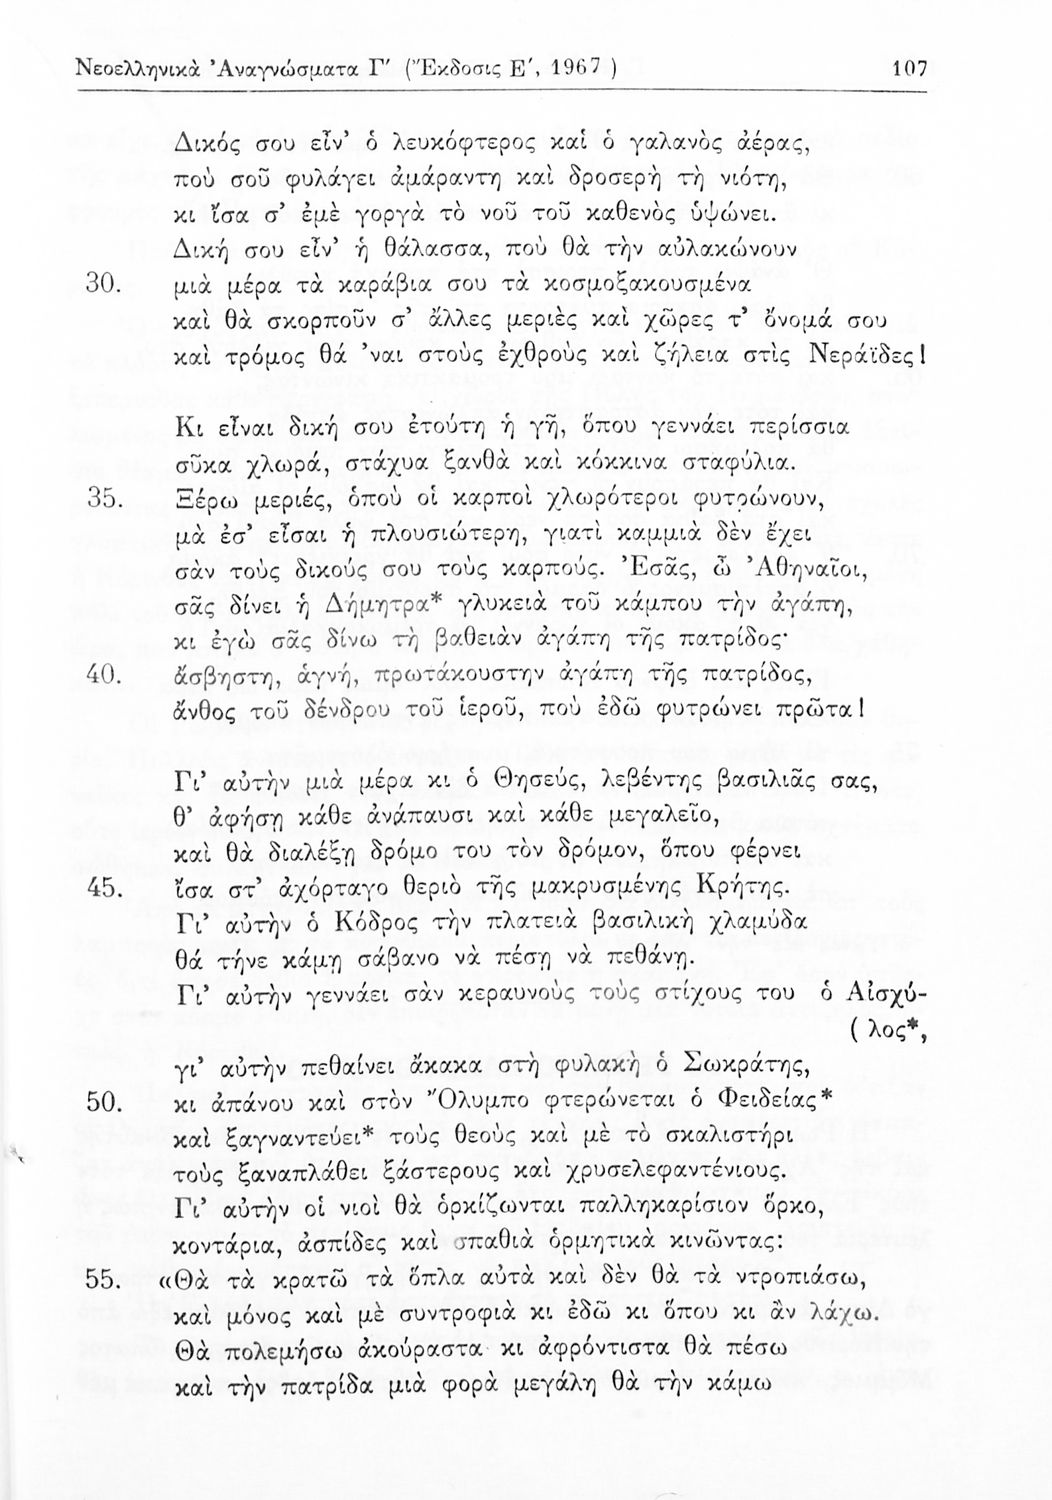 Νεοελληνικὰ Ἀναγνώσματα Γ΄ (Ἔκδοσις Ε΄, 1967 ) 107
Δικός σου εἶν’ ὁ λευκόφτερος καὶ ὁ γαλανὸς ἀέρας,
ποὺ σοῦ φυλάγει ἀμάραντη καὶ δροσερὴ τὴ νιότη,
κι ἴσα σ’ ἐμὲ γοργὰ τὸ νοῦ τοῦ καθενὸς ὑψώνει.
Δική σου εἶν’ ἡ θάλασσα, ποὺ θὰ τὴν αὐλακώνουν
30. μιὰ μέρα τὰ καράβια σου τὰ κοσμοξακουσμένα
καὶ θὰ σκορποῦν σ’ ἄλλες μεριὲς καὶ χῶρες τ’ ὄνομά σου
καὶ τρόμος θά ’ναι στοὺς ἐχθροὺς καὶ ζήλεια στὶς Νεράϊδες!
Κι εἶναι δική σου ἐτούτη ἡ γῆ, ὅπου γεννάει περίσσια
σῦκα χλωρά, στάχυα ξανθὰ καὶ κόκκινα σταφύλια.
35. Ξέρω μεριές, ὁποὺ οἱ καρποὶ χλωρότεροι φυτρώνουν,
μὰ ἐσ’ εἶσαι ἡ πλουσιώτερη, γιατὶ καμμιὰ δὲν ἔχει
σὰν τοὺς δικούς σου τοὺς καρπούς. Ἐσᾶς, ὦ Ἀθηναῖοι,
σᾶς δίνει ἡ Δήμητρα* γλυκειὰ τοῦ κάμπου τὴν ἀγάπη,
κι ἐγὼ σᾶς δίνω τὴ βαθειὰν ἀγάπη τῆς πατρίδος·
40. ἄσβηστη, ἁγνή, πρωτάκουστην ἀγάπη τῆς πατρίδος,
ἄνθος τοῦ δένδρου τοῦ ἱεροῦ, ποὺ ἐδῶ φυτρώνει πρῶτα!
Γι’ αὐτὴν μιὰ μέρα κι ὁ Θησεύς, λεβέντης βασιλιᾶς σας,
θ’ ἀφήσῃ κάθε ἀνάπαυσι καὶ κάθε μεγαλεῖο,
καὶ θὰ διαλέξῃ δρόμο του τὸν δρόμον, ὅπου φέρνει
45. ἴσα στ’ ἀχόρταγο θεριὸ τῆς μακρυσμένης Κρήτης.
Γι’ αὐτὴν ὁ Κόδρος τὴν πλατειὰ βασιλικὴ χλαμύδα
θά τήνε κάμῃ σάβανο νὰ πέσῃ νὰ πεθάνῃ.
Γι’ αὐτὴν γεννάει σὰν κεραυνοὺς τοὺς στίχους του ὁ Αἰσχύ-
( λος*,
γι’ αὐτὴν πεθαίνει ἄκακα στὴ φυλακὴ ὁ Σωκράτης,
50. κι ἀπάνου καὶ στὸν Ὄλυμπο φτερώνεται ὁ Φειδείας*
καὶ ξαγναντεύει* τοὺς θεοὺς καὶ μὲ τὸ σκαλιστήρι
τοὺς ξαναπλάθει ξάστερους καὶ χρυσελεφαντένιους.
Γι’ αὐτὴν οἱ νιοὶ θὰ ὁρκίζωνται παλληκαρίσιον ὅρκο,
κοντάρια, ἀσπίδες καὶ σπαθιὰ ὁρμητικὰ κινῶντας:
55. «Θὰ τὰ κρατῶ τὰ ὅπλα αὐτὰ καὶ δὲν θὰ τὰ ντροπιάσω,
καὶ μόνος καὶ μὲ συντροφιὰ κι ἐδῶ κι ὅπου κι ἂν λάχω.
Θὰ πολεμήσω ἀκούραστα κι ἀφρόντιστα θὰ πέσω
καὶ τὴν πατρίδα μιὰ φορὰ μεγάλη θὰ τὴν κάμω